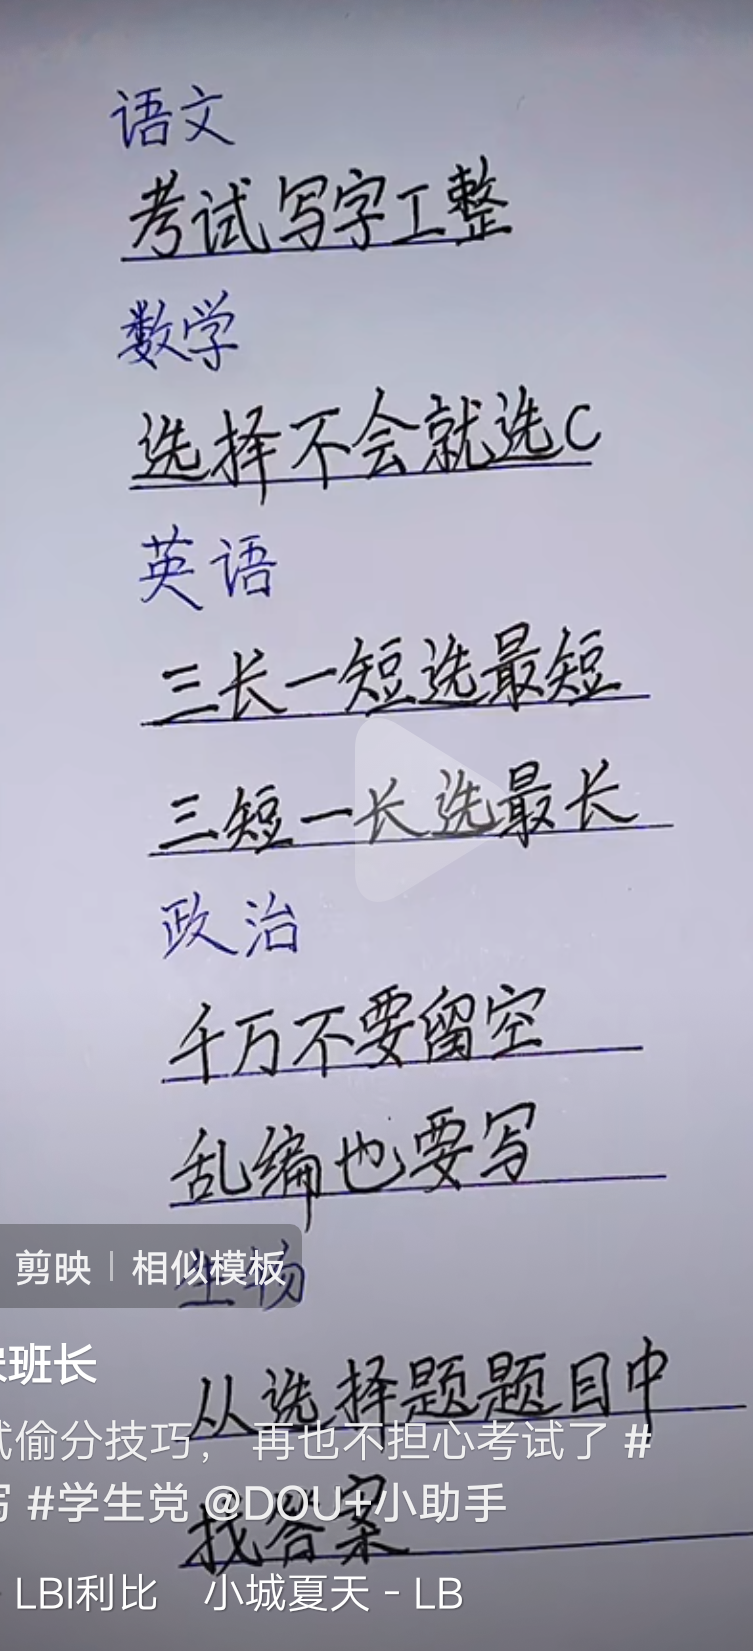 语文
考试写字工整
数学
选择不会就选C
英语
三长一短选最短
三短一长选最长
政治
千万不要留空
乱编也要写
剪映 | 相似模板
生物
班长
从选择题题目中
偷分技巧， 再也不担心考试了 #
#学生党 @DOU+小助手
找答案
LBI利比 小城夏天 - LB